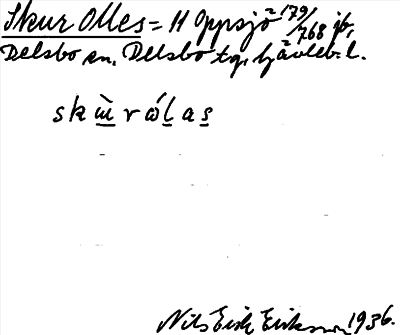 Skur Olles = 11 Oppsjö 179/768 jb,
Delsbo sn, Delsbo tg, Gävleb. l.
skù̱rvólas̱
Nils Erik Eriksson 1936.